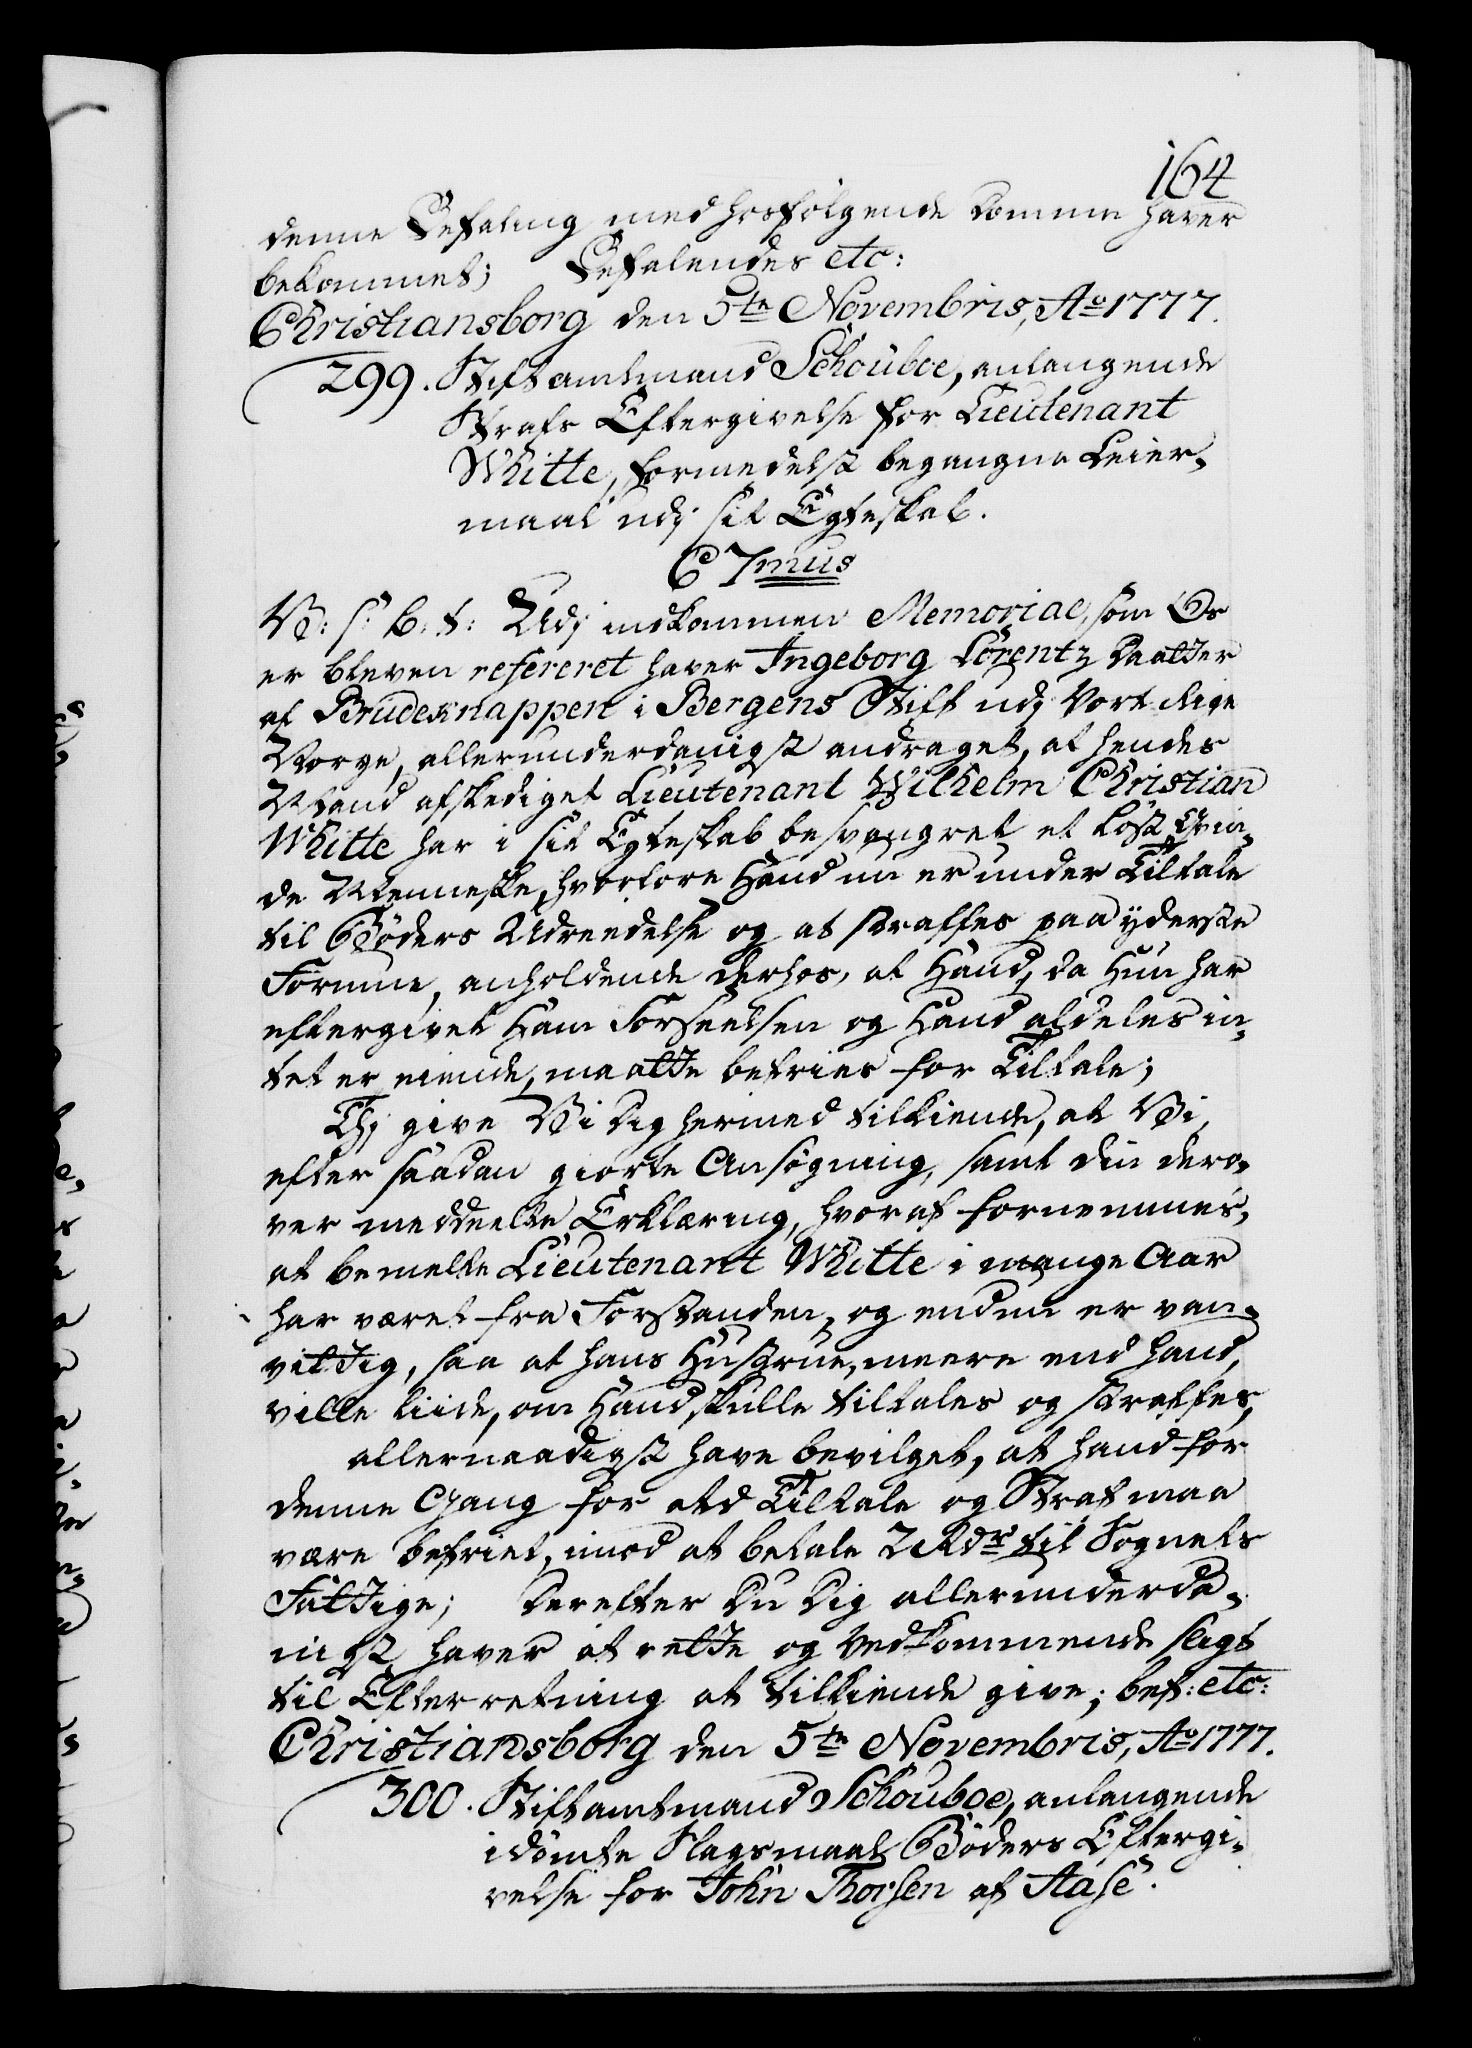 164
denne Befaling med hosfølgende Domme haver
bekommet; Befalendes etc:
Christiansborg den 5te Novembris, Ao 1777.
299. Stiftamtmand Schouboe, anlangende
Strafs Eftergivelse for Lieutenant
Whitte, formedelst begangne Leier-
maal udj sit Egteskab.
C 7mus
V: s: b: t: Udj indkommen Memorial, som Os
er bleven refereret haver Ingeborg Lorentz Daatter
af Brudeknappen i Bergens Stift udj Vort Rige
Norge, allerunderdanigst andraget, at hendes
Mand afskediget Lieutenant Wilhelm Christian
Whitte har i sit Egteskab besvangret et løst Qvin-
de Menneske, hvorfore Hand nu er under Tiltale
til Bøders Udreedelse og at straffes paa yderste
Formue, anholdende derhos, at Hand, da Hun har
eftergivet Ham Forseelsen og Hand aldeles in-
tet er eiende, maatte befries for Tiltale;
Thj give Vi Dig hermed tilkiende, at Vi,
efter saadan giorte Ansøgning, samt din dero-
ver meddeelte Erklæring, hvoraf fornemmes,
at bemelte Lieutenant Whitte i mange Aar
har været fra Forstanden, og endnu er van-
vittig, saa at hans Hustrue, meere end hand,
ville liide, om Hand skulle tiltales og straffes,
allernaadigst have bevilget, at hand for
denne Gang for ald Tiltale og Straf maa
være befriet, imod at betale 2 Rdr til Sognets
Fattige; Derefter Du Dig allerunderda-
nigst haver at rette og Vedkommende sligt
til Efterretning at tilkiende give; bef: etc:
Christiansborg den 5te Novembris, Ao 1777.
300. Stiftamtmand Schouboe, anlangende
idømte Slagsmaals Bøders Eftergi-
velse for John Thorsen af Aase.